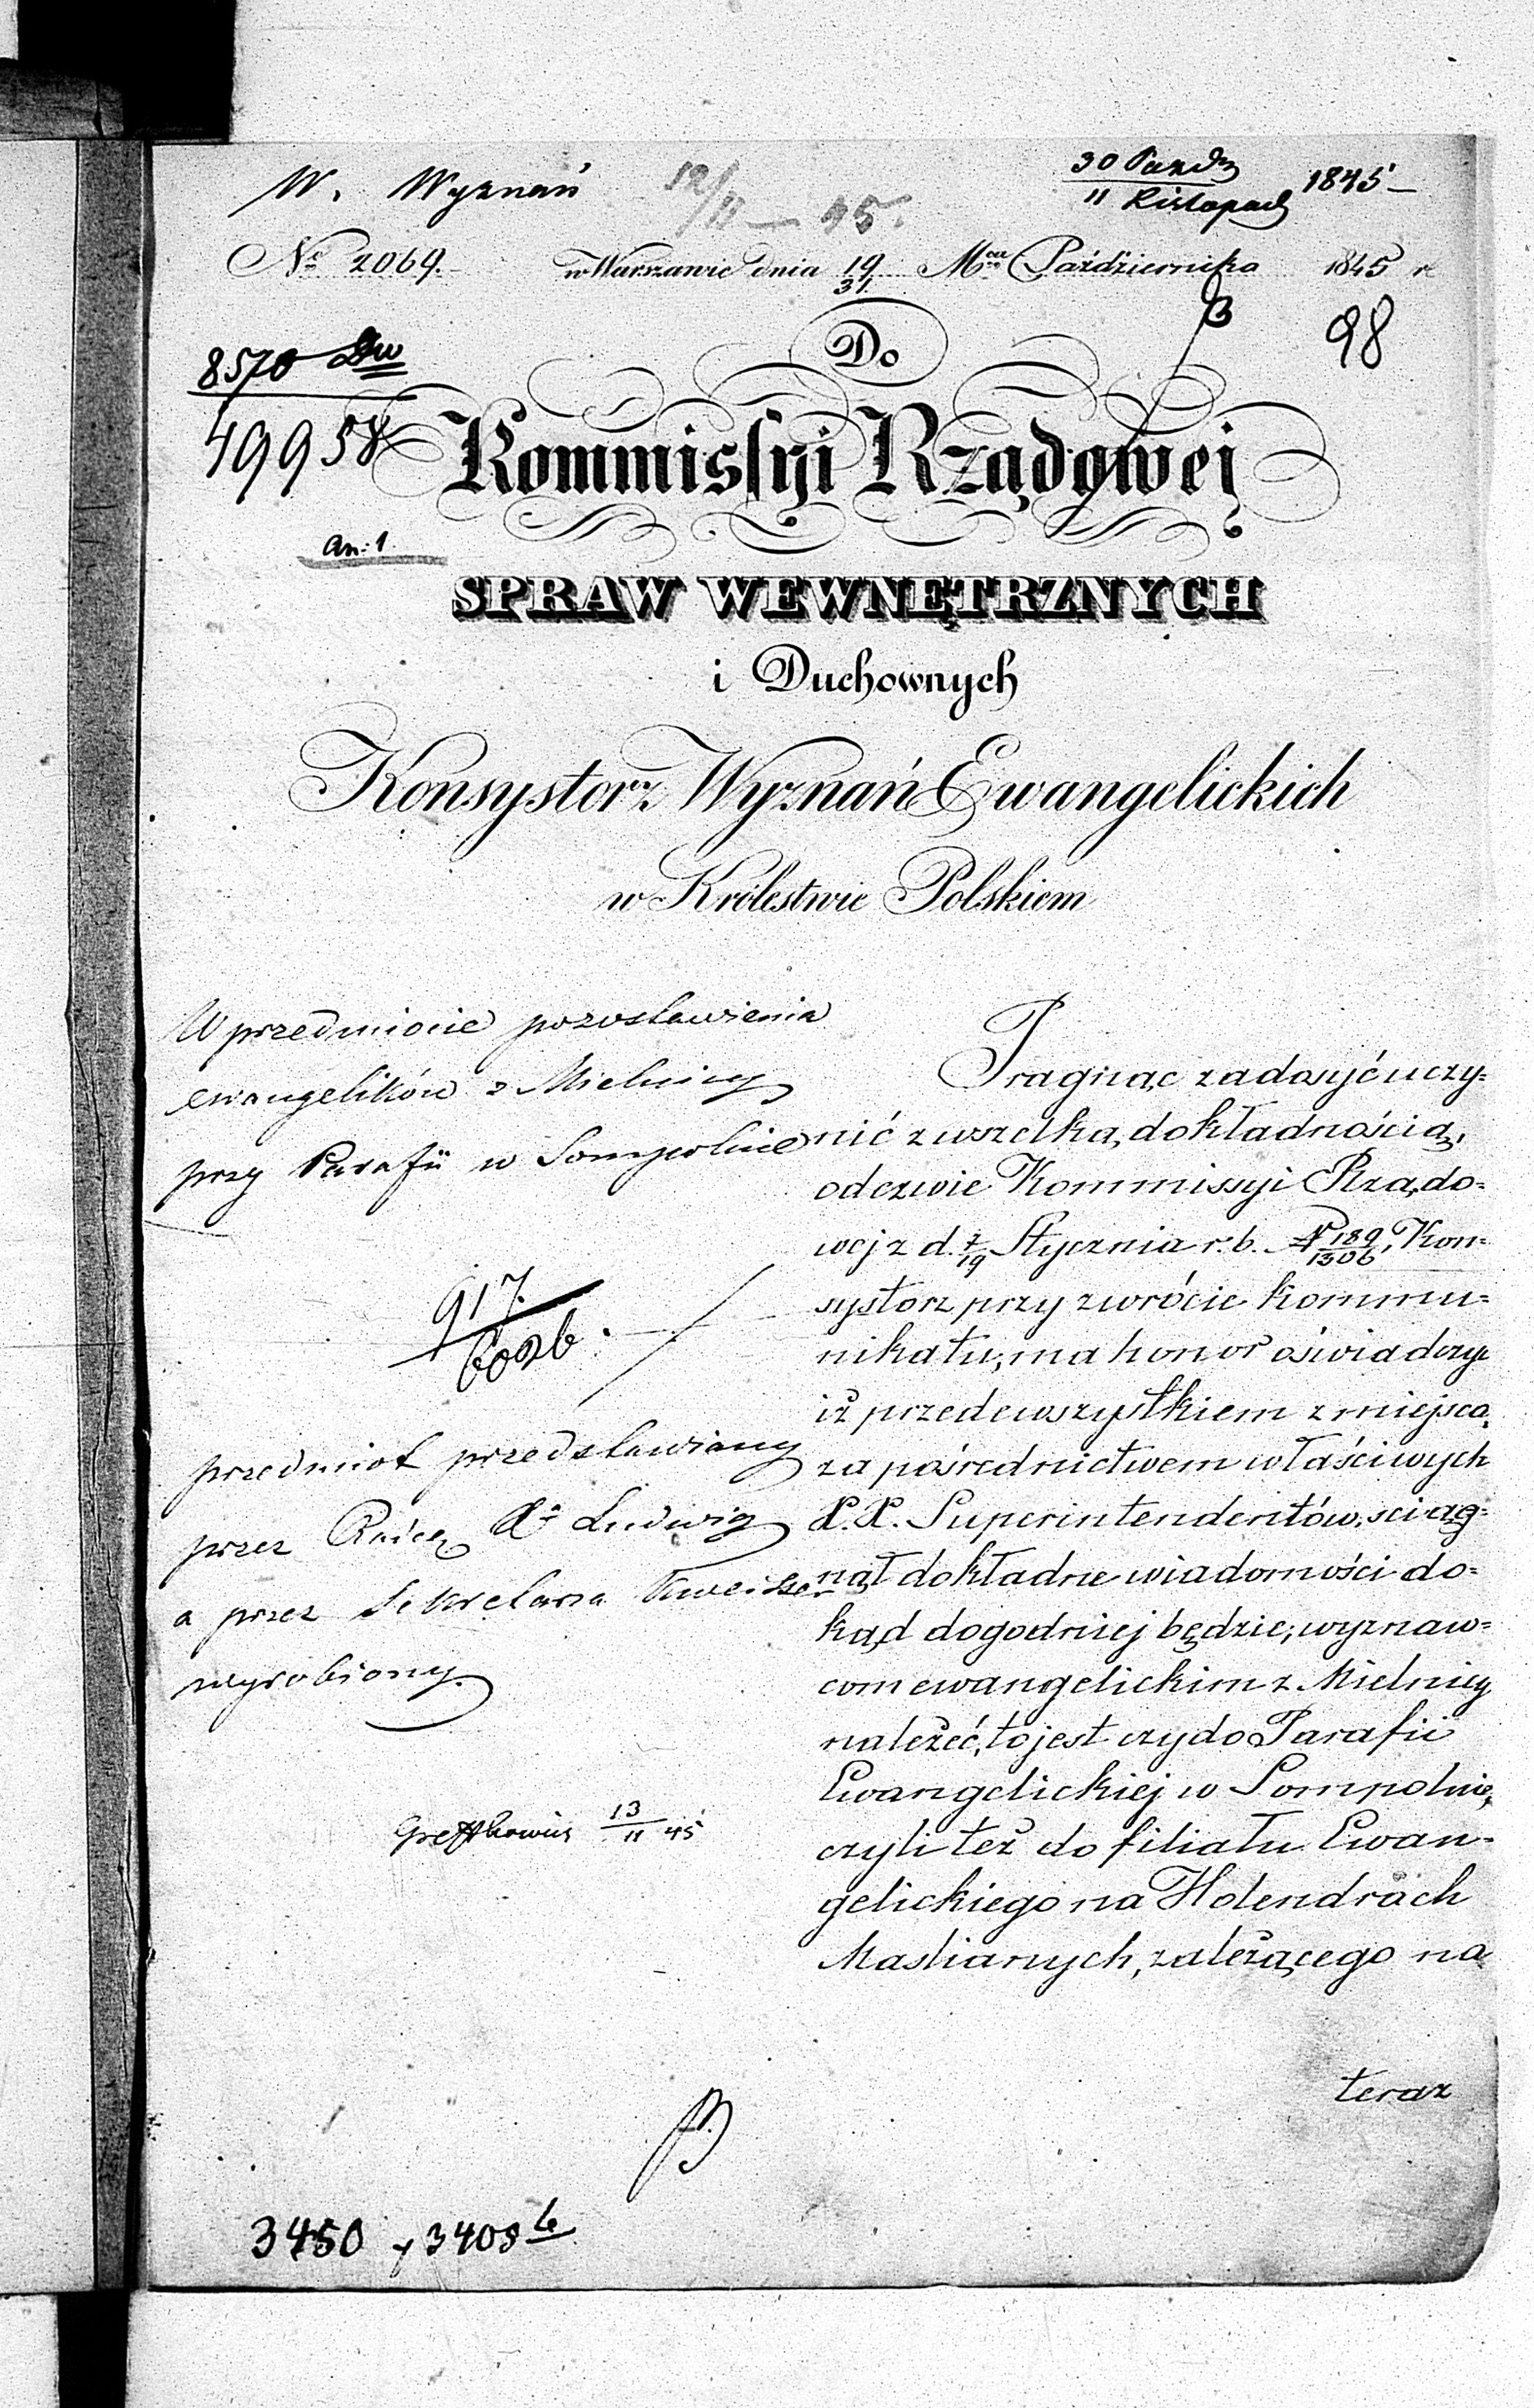 W. Wyznań
12/11 – 45.
30 Paźdz / 11 Listopad 1845 –
No 2069. w Warszawie dnia 19/31 Mca Października 1845 r
98
8570 Dw
49958
An: 1.
Do
Kommissyi Rządowej
SPRAW WEWNĘTRZNYCH
i Duchownych
Konsystorz Wyznań Ewangelickich
w Królestwie Polskiem
W przedmiocie pozostawienia
ewangelików z Mielnicy
przy Parafii w Sompolnie
917.
przedmiot przedstawiany
przez Radcę Ludwig
a przez Sekretarza
wyrobiony.
13/11 45
Pragnąc zadosyć uczy=
nić z wszelką dokładnością,
odezwie Kommissyi Rządo=
wej z d. 7/19 Stycznia r. b. No 189/1306, Kon=
systorz przy zwrócie kommu=
nikatu, ma honor oświadczyć
iż przedewszystkiem z miejsca,
za pośrednictwem właściwych
X. X. Superintendentów, ściąg=
nął dokładne wiadomości do=
kąd dogodniej będzie, wyznaw=
com ewangelickim z Mielnicy
należeć, to jest czy do Parafii
Ewangelickiej w Sompolnie,
czyli też do filiału Ewan=
gelickiego na Holendrach
Maslianych, zależącego na
teraz
3450 y 3408 b